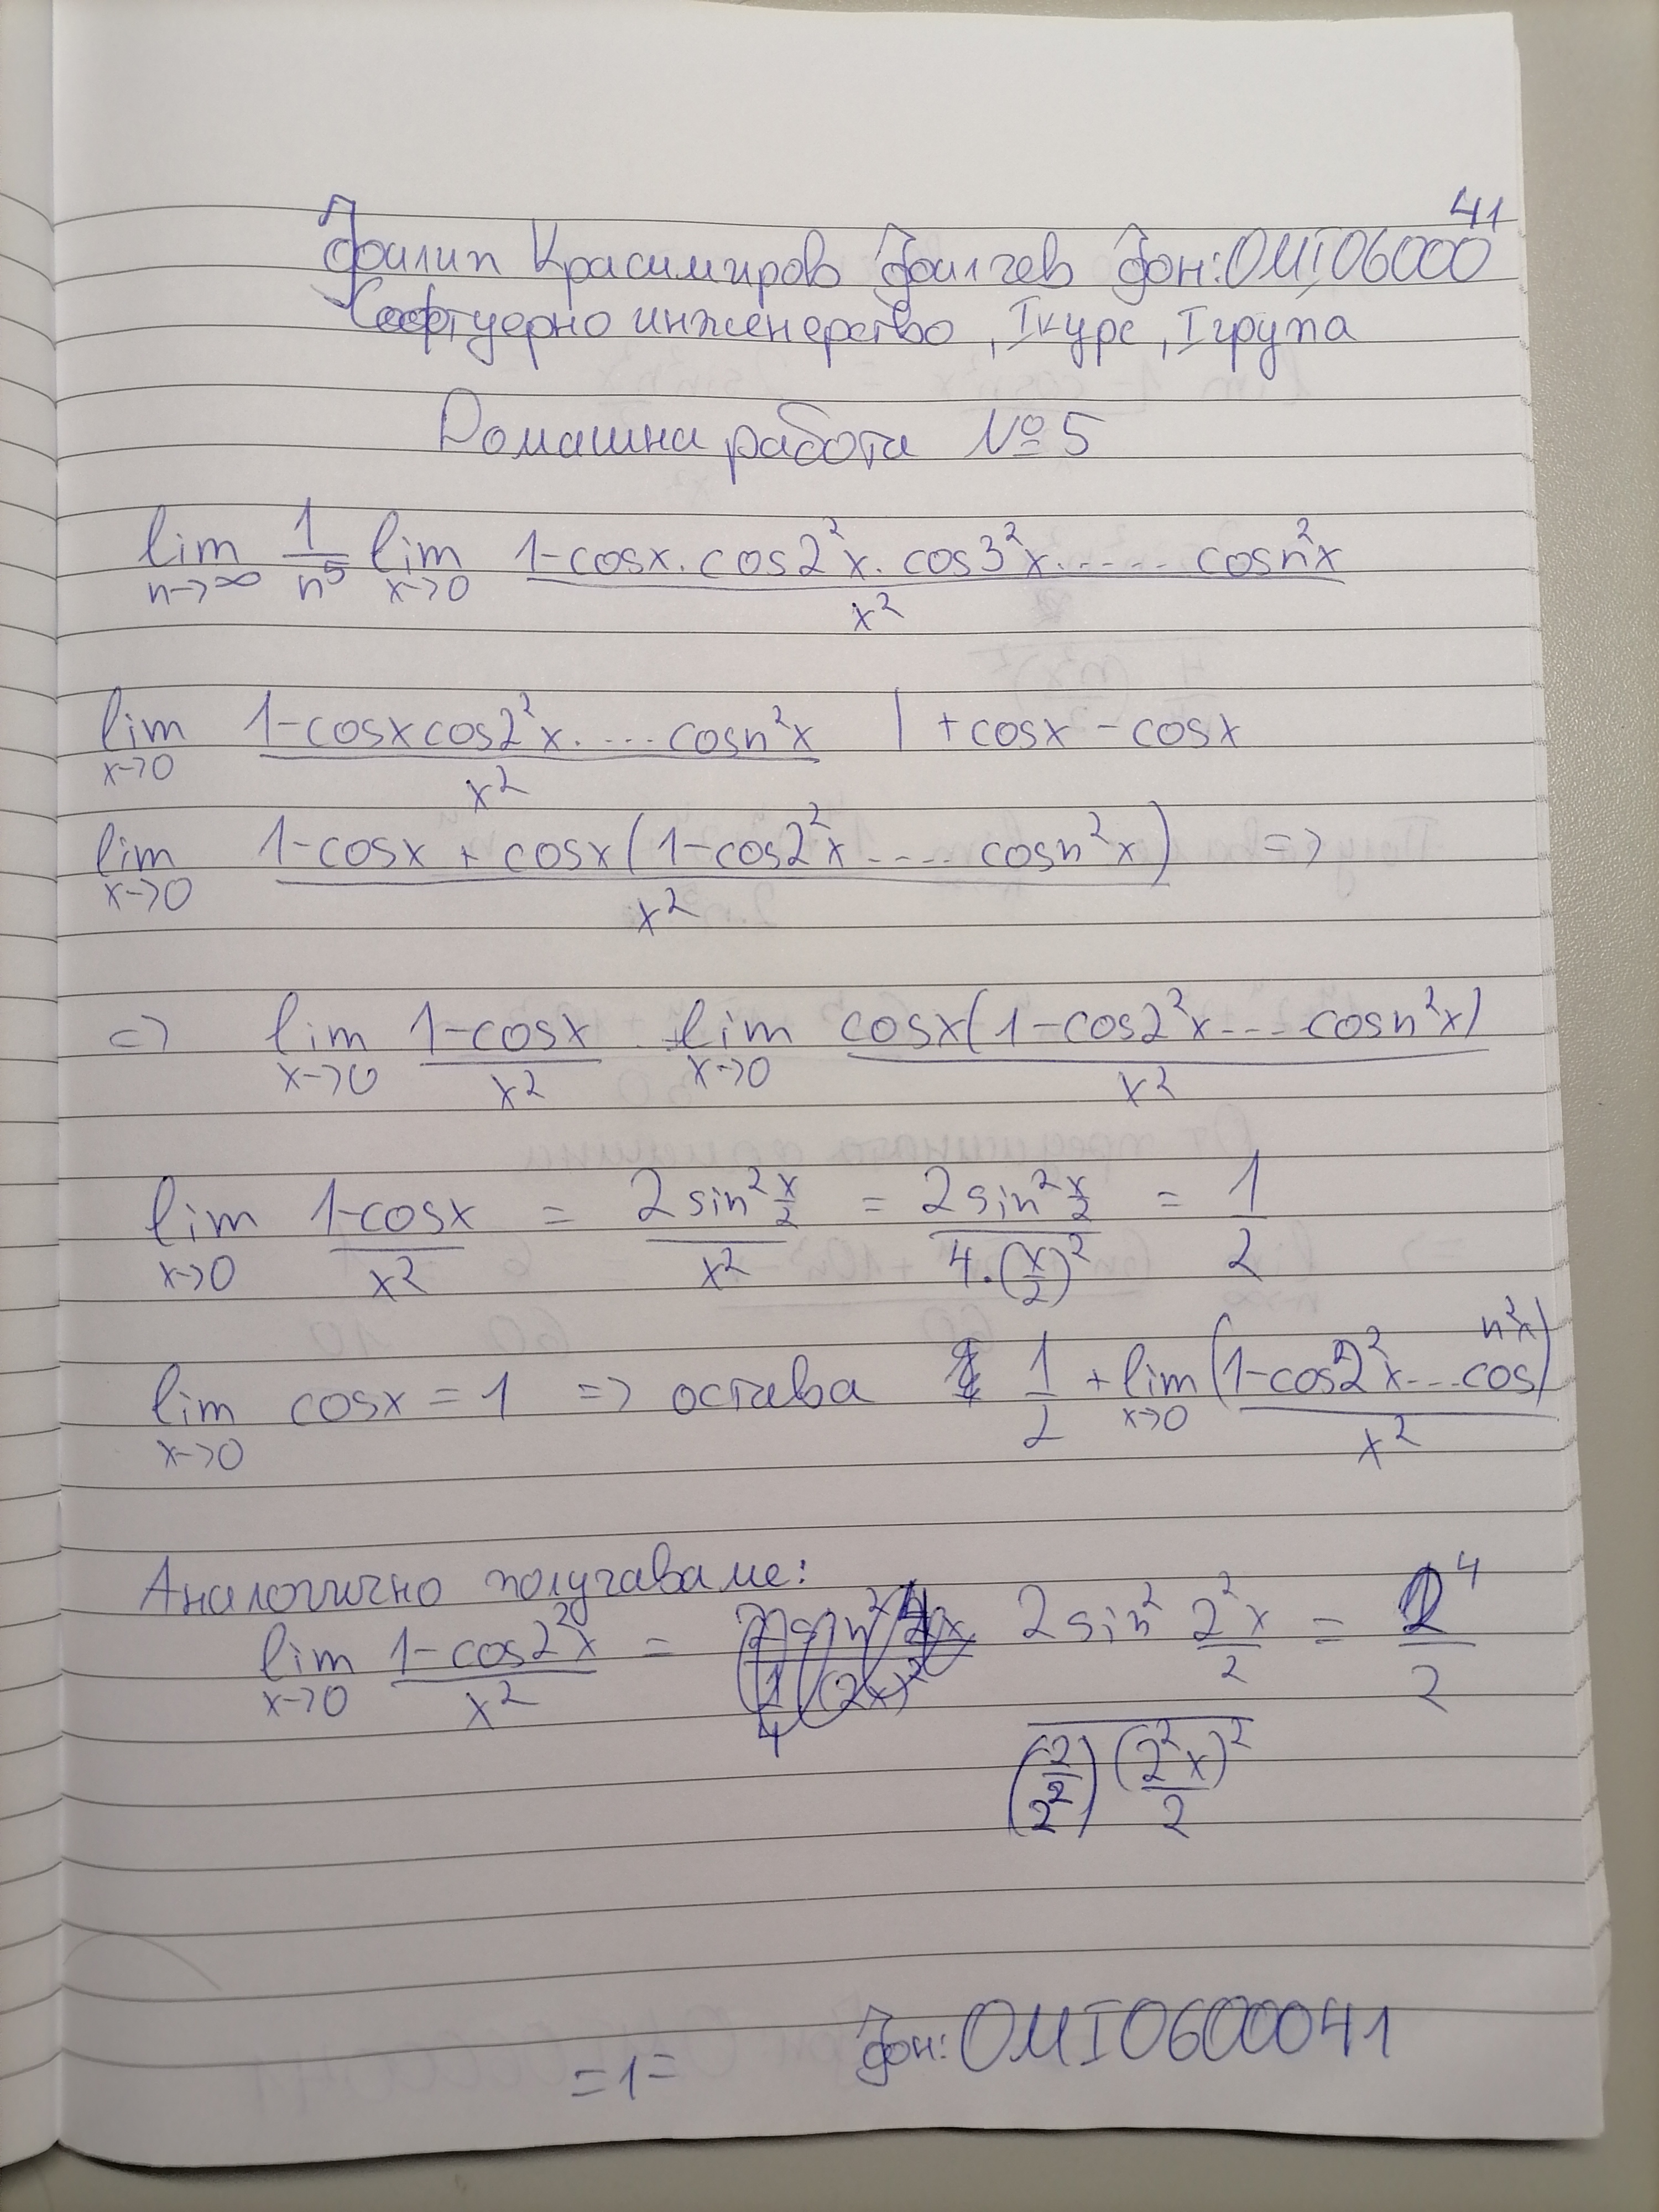 Филип Красимиров Филчев фон:0MI0600041
Софтуерно инженерство, I курс, I група
Домашна работа №5
lim n->∞ 1/n^5 lim x->0 (1-cosx.cos2²x.cos3²x.....cosn²x)/x²
lim x->0 (1-cosxcos2²x....cosn²x)/x² | +cosx-cosx
lim x->0 (1-cosx+cosx(1-cos2²x....cosn²x))/x² =>
=> lim x->0 (1-cosx)/x² lim x->0 cosx(1-cos2²x...cosn²x)/x²
lim x->0 (1-cosx)/x² = 2sin²(x/2)/x² = 2sin²(x/2)/(4.(x/2)²) = 1/2
lim x->0 cosx=1 => остава 1/2 + lim x->0 (1-cos2²x...cos n²x)/x²
Аналогично получаваме:
lim x->0 (1-cos2²x)/x² = 2sin²(2²x/2)/((2/2)²(2²x/2)²) = 2⁴/2
фон:0MI0600041
=1=